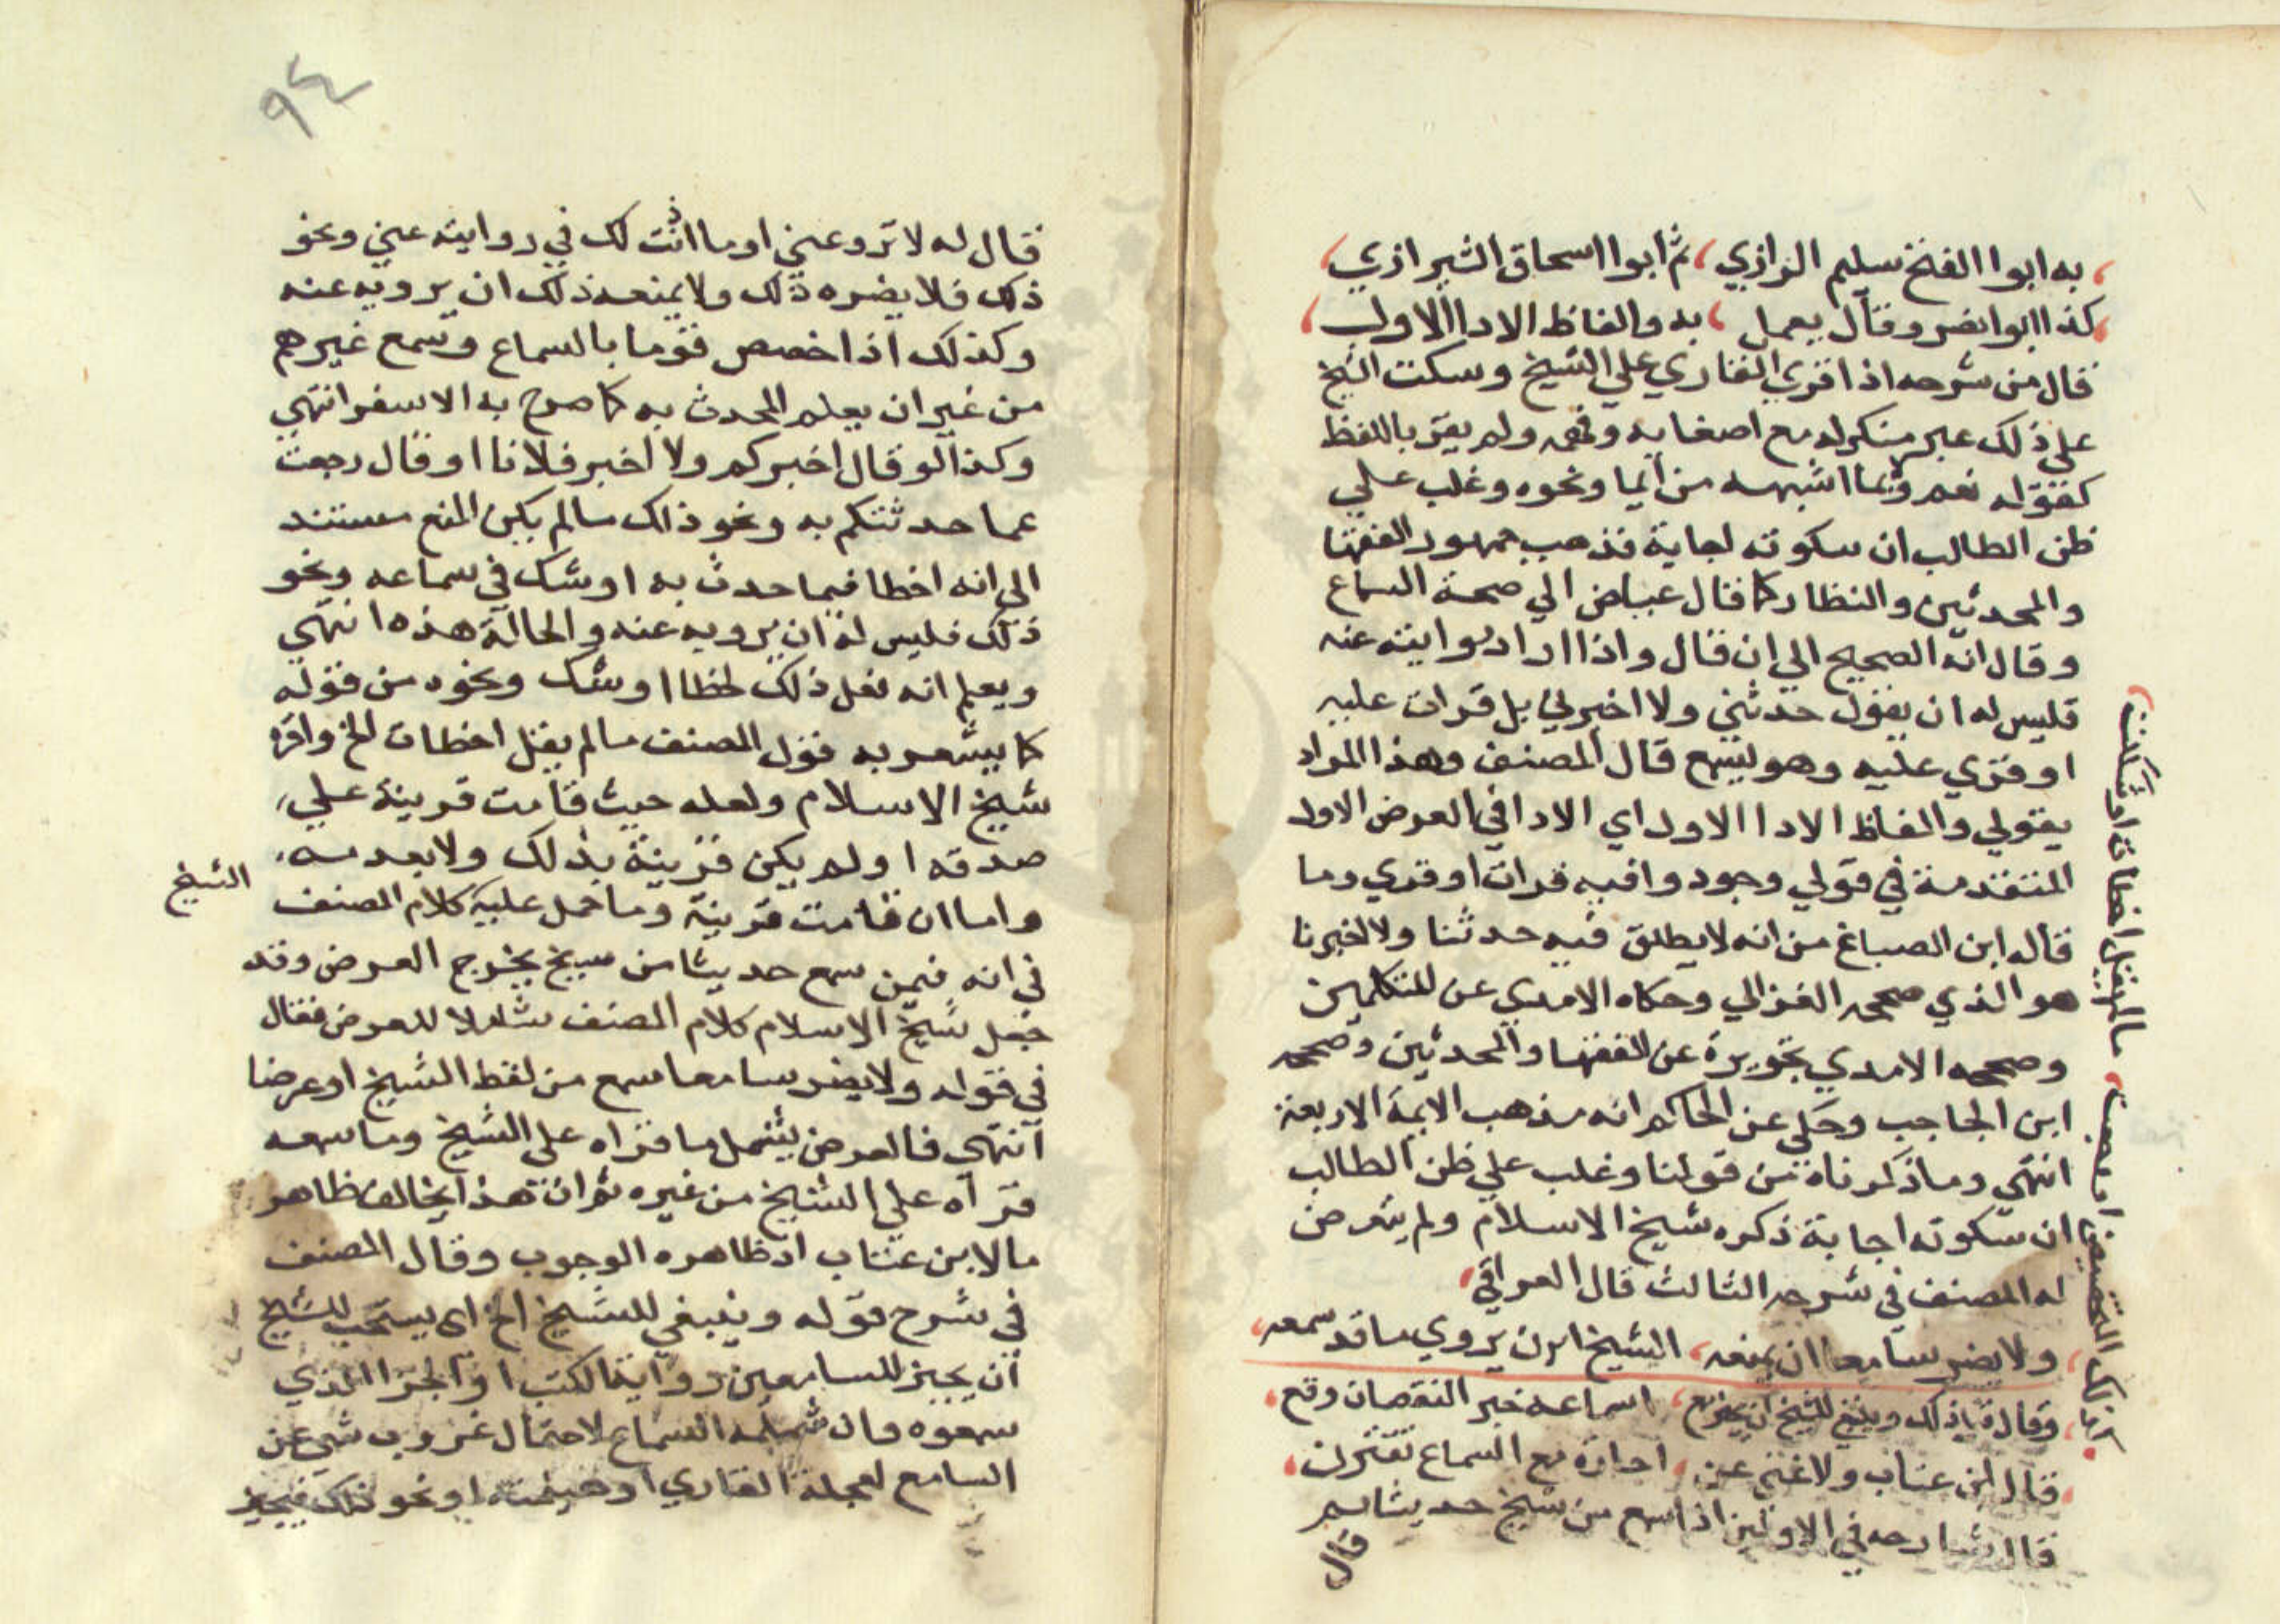 به ابوا الفتح سليم الرازي ، ثم ابوا اسحاق الشيرازي ،
كذا ابوا نضر وقال يعمل ، به والفاظ الادا الاول ،
قال من شرحه اذا قري القاري علي الشيخ وسكت الشيخ
علي ذلك غير منكر له مع اصغايه وفهمه ولم يقر باللفظ
كقوله نعم وما اشبهه من ايما ونحوه وغلب علي
ظن الطالب ان سكوته اجابة فذهب جمهور الفقها
والمحدثين والنظار كما قال عياض الي صحة السماع
وقال انه الصحيح الي ان قال واذا اراد روايته عنه
فليس له ان يقول حدثني ولا اخبرني بل قرات عليه
او قري عليه وهو يسمع قال المصنف وهذا المراد
بقولي والفاظ الادا الاول اي الادا في العرض الاول
المتقدمة في قولي وجودوا فيه قرات او قري وما
قاله ابن الصباغ من انه لا يطلق فيه حدثنا ولا اخبرنا
هو الذي صححه الغزالي وحكاه الامدي عن المتكلمين
وصححه الامدي تجويزه عن الفقها والمحدثين وصححه
ابن الحاجب وحكي عن الحاكم انه مذهب الايمة الاربعة
انتهي وما ذكرناه من قولنا وغلب علي ظن الطالب
ان سكوته اجابة ذكره شيخ الاسلام ولم يتعرض
له المصنف في شرحه الثالث قال العراقي ،
ولا يضر سامعا ان يمنعه ، الشيخ ان يروي ما قد سمعه ،
وقال كذلك وينبغي للشيخ ان يجيز مع ، اسماعه خبر النقصان وقع ،
قال ابن عتاب ولا غني عن ، اجازة مع السماع تقترن ،
قال شارحه في الاولين اذا سمع من شيخ حديثا ثم
قال
كذلك التخصيص او رجعت ، ما لم يقل اخطات او شككت ،
٩٤
قال له لا ترو عني او ما اذنت لك في روايته عني ونحو
ذلك فلا يضره ذلك ولا يمنعه ذلك ان يرويه عنه
وكذلك اذا خصص قوما بالسماع وسمع غيرهم
من غير ان يعلم المحدث به كما صرح به الاسفرا انتهي
وكذا لو قال اخبركم ولا اخبر فلانا او قال رجعت
عما حدثتكم به ونحو ذلك ما لم يكن المنع مستند
الي انه اخطا فيما حدث به او شك في سماعه ونحو
ذلك فليس له ان يرويه عنه والحالة هذه انتهي
ويعلم انه نعل ذلك لخطا او شك ونحوه من قوله
كما يشعر به قول المصنف ما لم يقل اخطات الخ واقره
شيخ الاسلام ولعله حيث قامت قرينة علي
صدقه او لم يكن قرينة بذلك ولا بعدمه
واما ان قامت قرينة وما حمل عليه كلام المصنف الشيخ
في انه فيمن سمع حديثا من شيخ يخرج العرض وقد
جعل شيخ الاسلام كلام المصنف شاملا للعرض فقال
في قوله ولا يضر سامعا سمع من لفظ الشيخ او عرضا
انتهي فالعرض يشمل ما قراه علي الشيخ وما سمعه
قراه علي الشيخ من غيره ثم ان هذا يخالف ظاهر
ما لابن عتاب اذ ظاهره الوجوب وقال المصنف
في شرح قوله وينبغي للشيخ الخ اي يستحب للشيخ
ان يجيز للسامعين رواية الكتب او الجزا الذي
سمعوه وان شمله السماع لاحتمال غروب شي عن
السامع لعجلة القاري او هينمته او نحو ذلك فيجبر